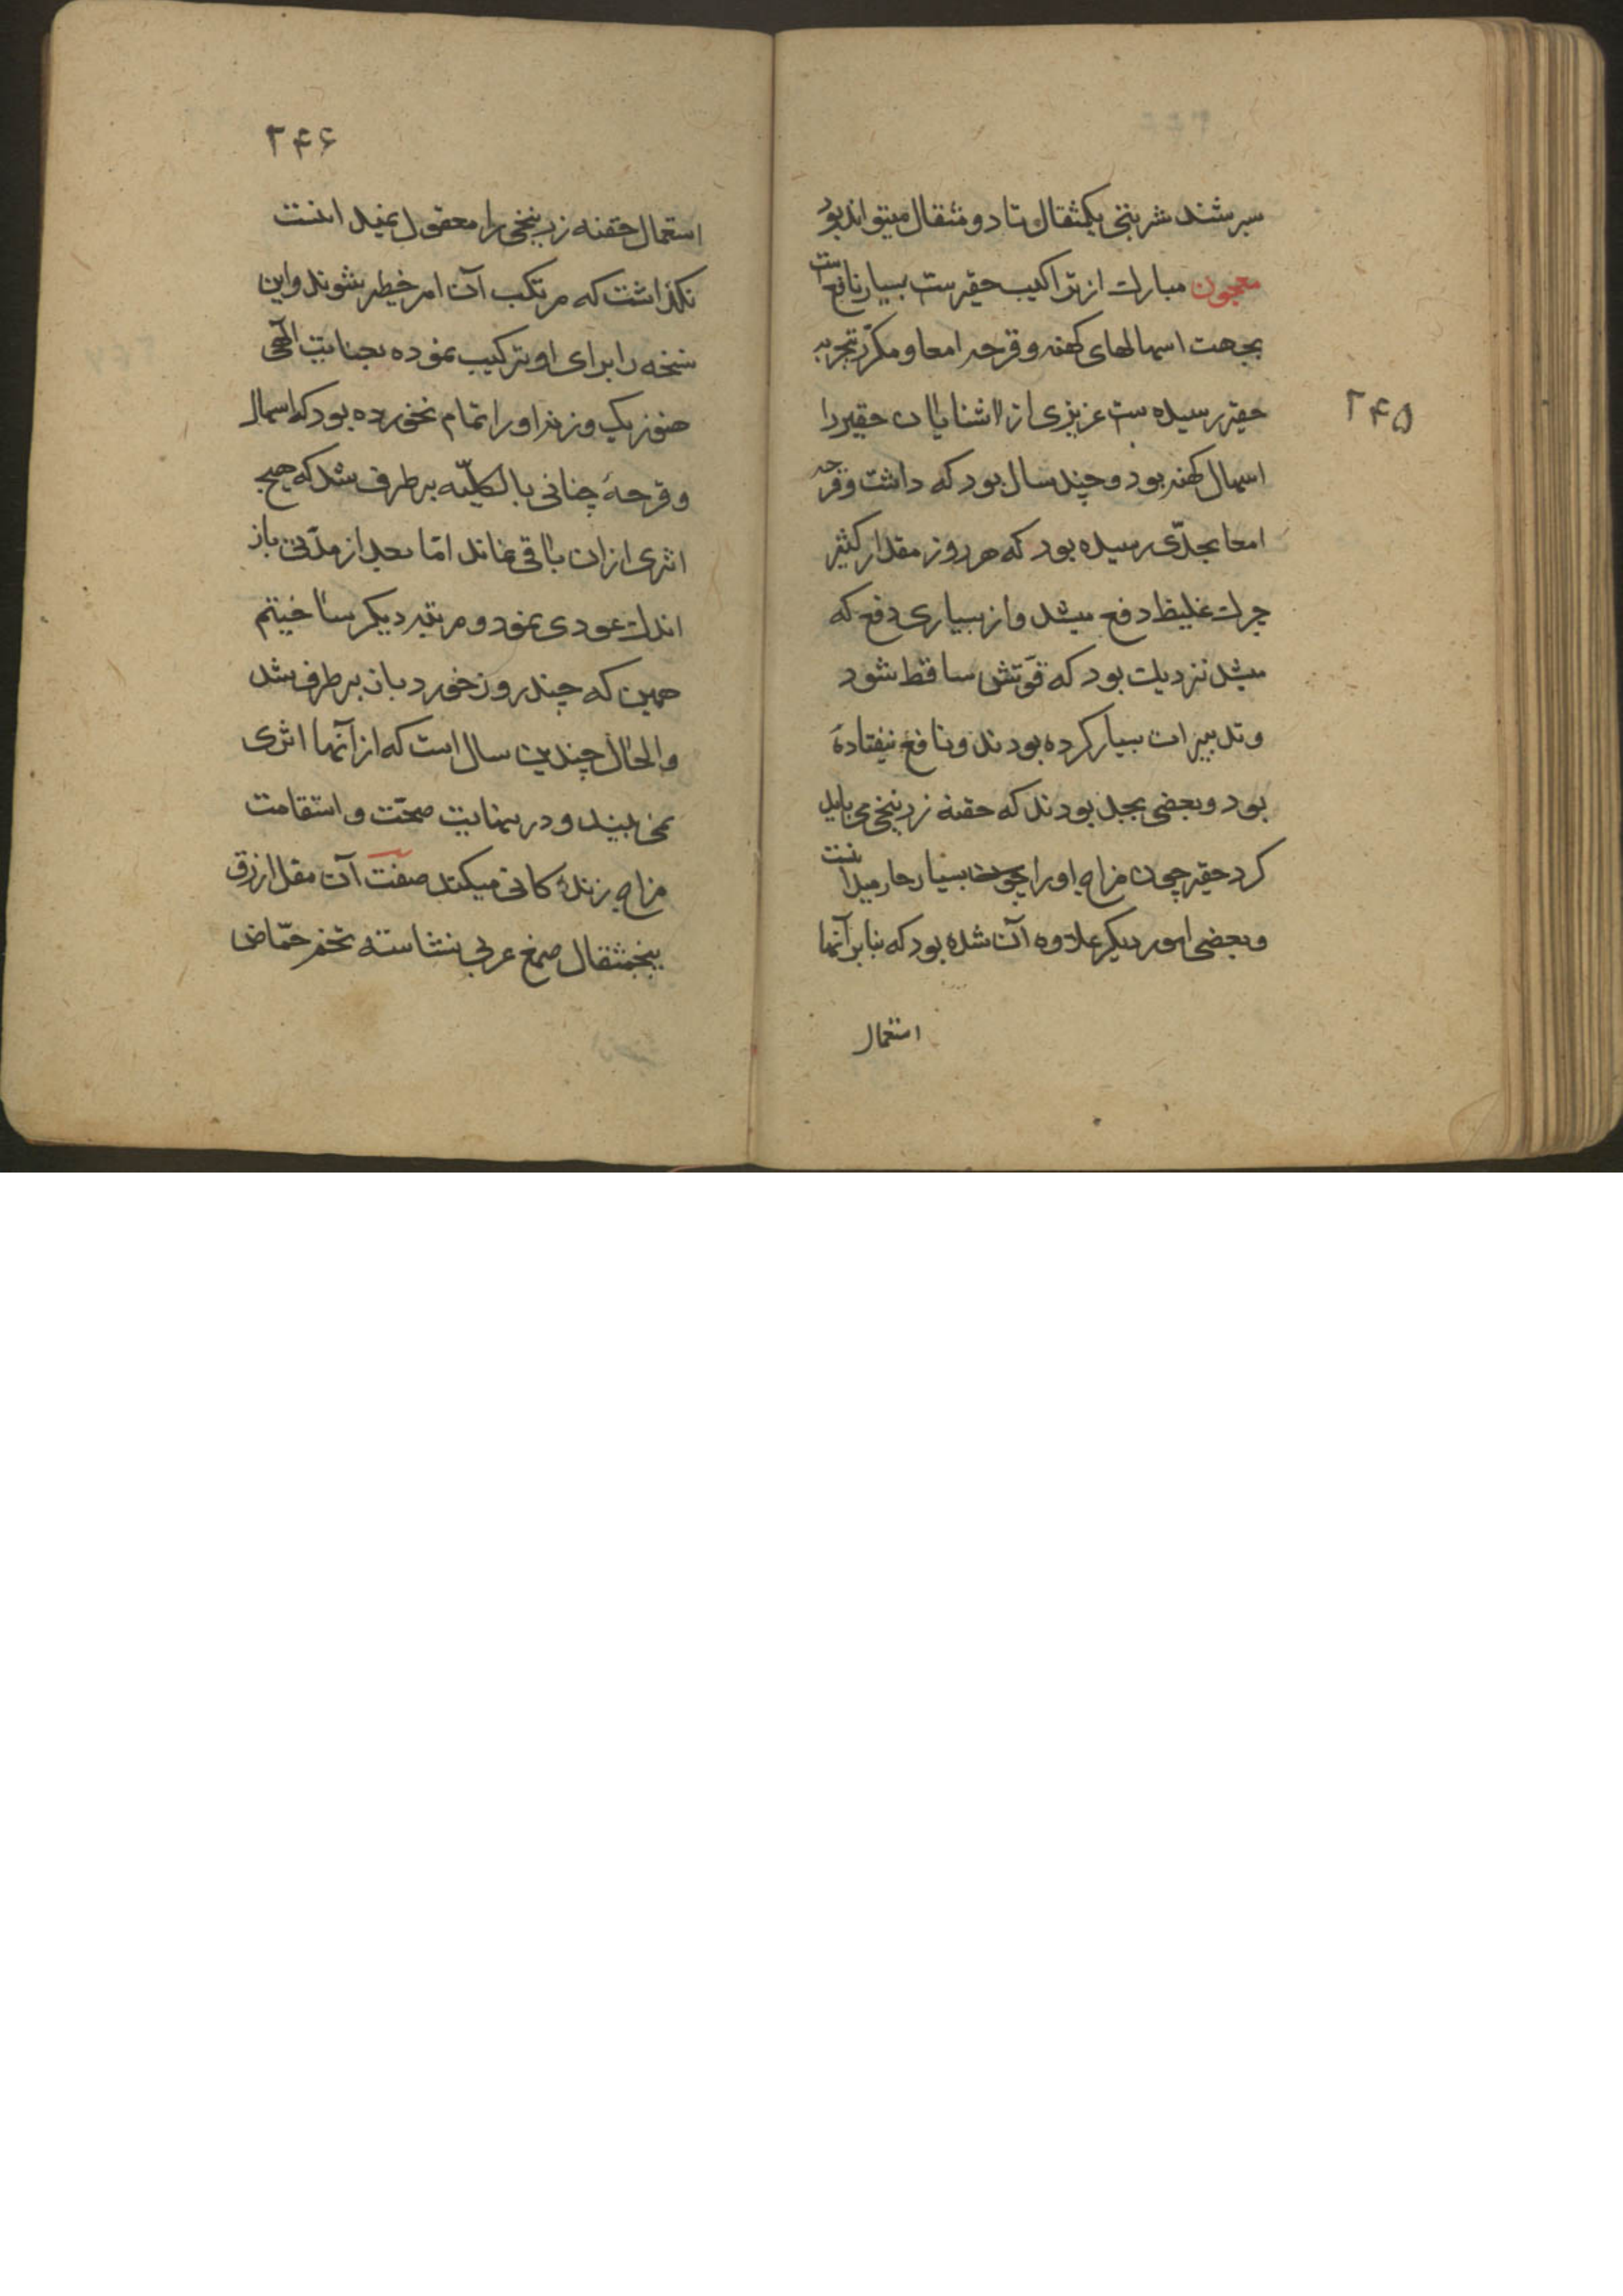 ۲۴۵
سرشند شربتی یکمثقال و تا دو مثقال میتواند بود
معجون مبارک از تراکیب حقیرست بسیار نافع است
بجهت اسهالهای کهنه و قرحه امعا و مکرّر بتجربه
حقیر رسیده ست عزیزی از اشنایان حقیر را
اسهال کهنه بود و چند سال بود که داشت و قرحه
امعا بحدّی رسیده بود که هر روز مقدار کثیر
چرک غلیظ دفع میشد و از بسیاری دفع که
میشد نزدیک بود که قوّتش ساقط شود
و تدبیرات بسیار کرده بودند و نافع نیفتادهٔ
بود و بعضی بجد بودند که حقنه زرنیخی می باید
کرد حقیر چون مزاج او را بسیار حار میدانست
و بعضی امور دیکر علاوه آن شده بود که بنابر آنها
استعمال
۲۴۶
استعمال حقنه زرنیخی را معقول نمیدانست
نکذاشت که مرتکب آن امر خطیر شوند و این
نسخه را برای او ترکیب نموده بعنایت الٓهی
هنوز یک وزنه او را تمام نخورده بود که اسهال
و قرحهٔ چنانی بالکلیّه برطرف شد که هیچ
اثری ازان باقی نماند امّا بعد از مدّتی باز
اندک عودی نمود و مرتبه دیکر ساختیم
همین که چند روز خورد باز برطرف شد
والحال چندین سال است که از آنها اثری
نمی بیند و در نهایت صحّت و استقامت
مزاج زندهٔ کانی میکند صفت آن مقل ازرق
پنجمثقال صمغ عربی نشاسته تخم حمّاض